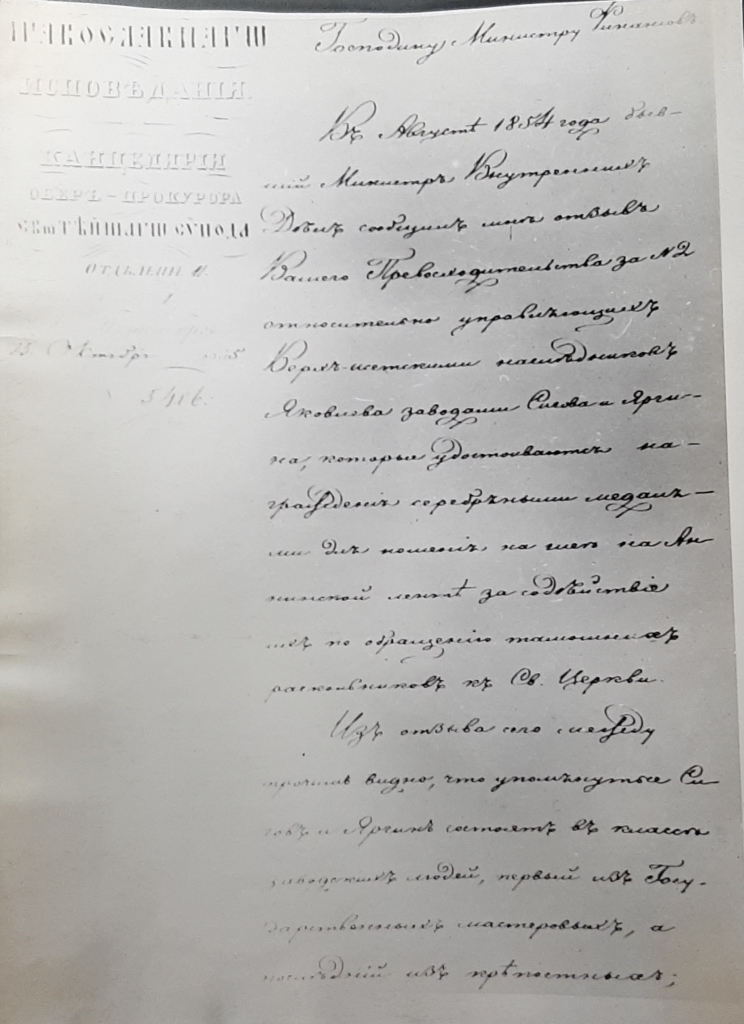 ПРАВОСЛАВНАГО
ИСПОВѢДАНІЯ.
КАНЦЕЛЯРІЯ
ОБЕРЪ-ПРОКУРОРА
СВЯТѢЙШАГО СѴНОДА
ОТДѢЛЕНІЕ
5416.
Господину Министру Финансовъ.
Въ Августѣ 1854 года быв-
шій Министръ Внутреннихъ
Дѣлъ сообщилъ мнѣ отзывъ
Вашего Превосходительства за №2
относительно управляющихъ
Верхъ-исетскими наслѣдниковъ
Яковлева заводами Сигова и Ярги-
на, которые удостоиваются на-
гражденія серебряными медаля-
ми для ношенія на шеѣ на Ан-
нинской лентѣ за содѣйствіе
ихъ по обращенію тамошнихъ
раскольниковъ къ Св. Церкви.
Изъ отзыва сего между
прочимъ видно, что упомянутые Си-
говъ и Яргинъ состоятъ въ классѣ
заводскихъ людей, первый изъ Госу-
дарственныхъ мастеровыхъ, а
послѣдній изъ крѣпостныхъ;